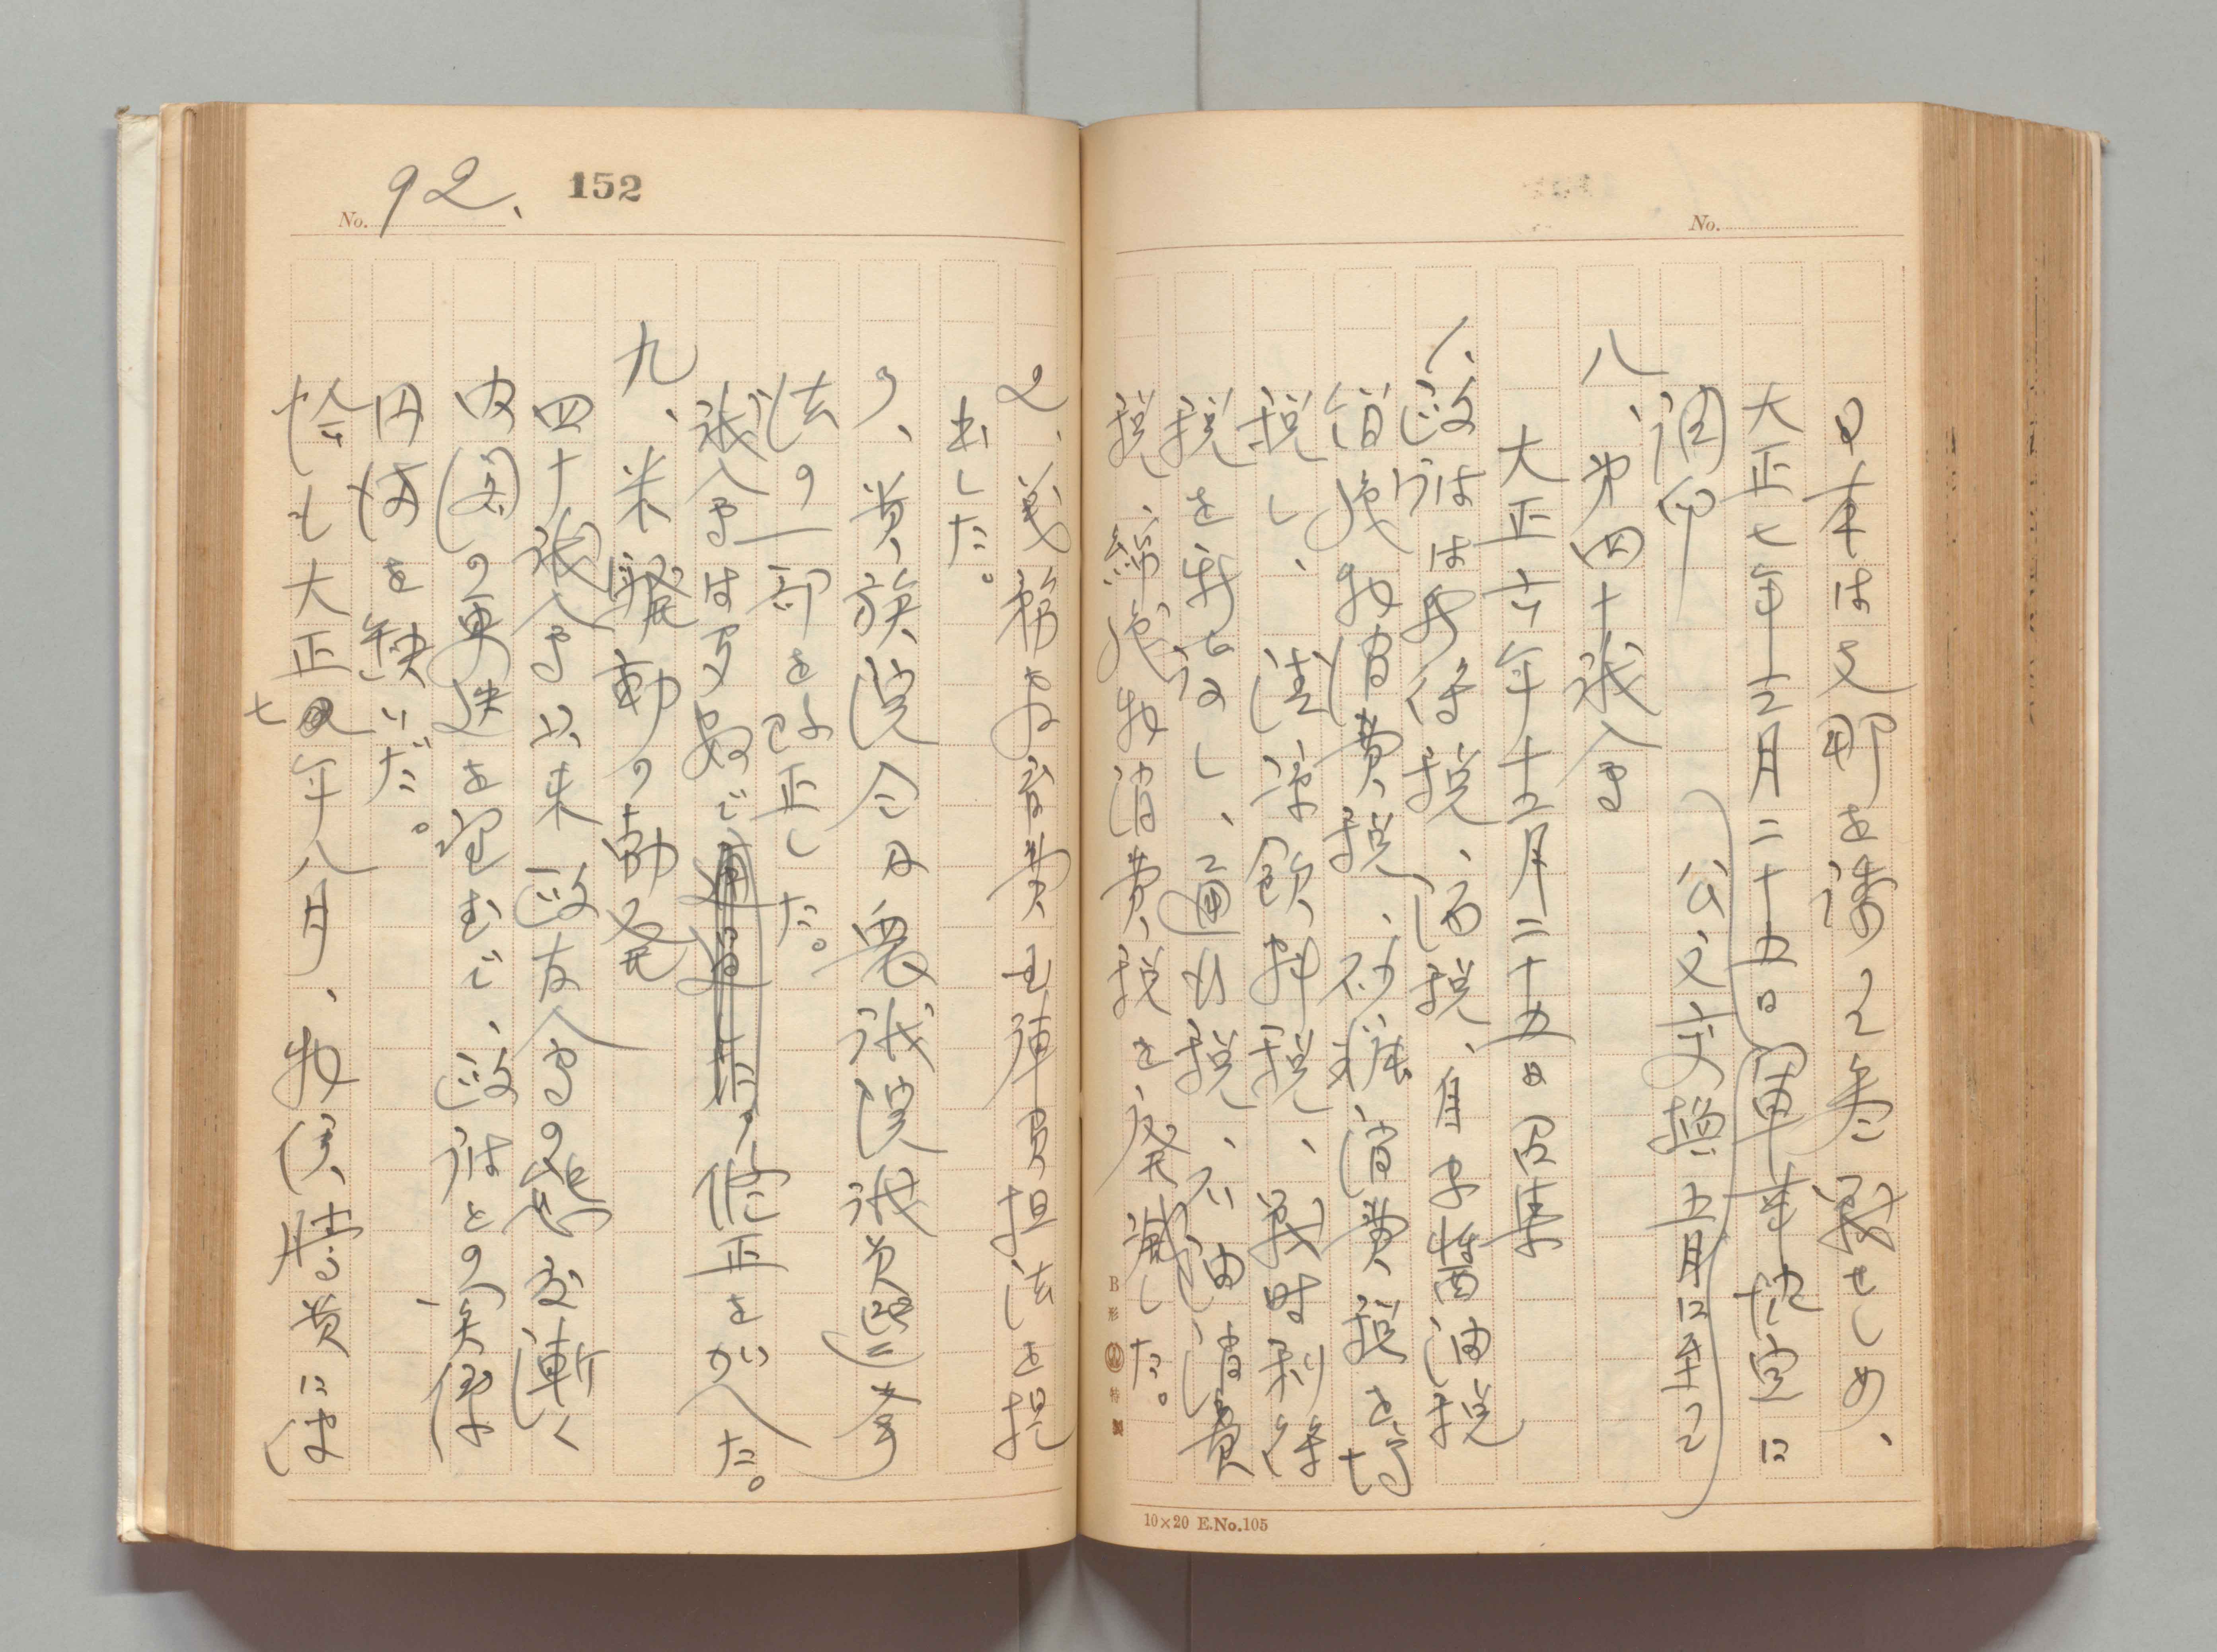 No.
日本は支那を誘ひ参戦せしめ、
大正七年三月二十五日軍事協定に
調印(公文交換五月に至る)
八、第四十議会
大正六年十二月二十五日召集
1、政府は所得税、酒税、自家用醤油税
絹織物消費税、砂糖消費税を増
税し、清涼飲料税、戦時利得
税を新設し、通行税、石油消費
税、綿織物消費税を廃減した。
B形 特製
10×20 E.No.105
No. 92、
152
2、義務教育費国庫負担法を提
出した。
3、貴族院令及衆議院議員選挙
法の一部を改正した。
議会は多数で修正を加へた。
九、米騒動の勃発
四十議会以来政友会の態度漸く
内閣の更迭を望むで、政府との関係
円満を欠いだ。
恰も大正七年八月、物価騰貴に伴